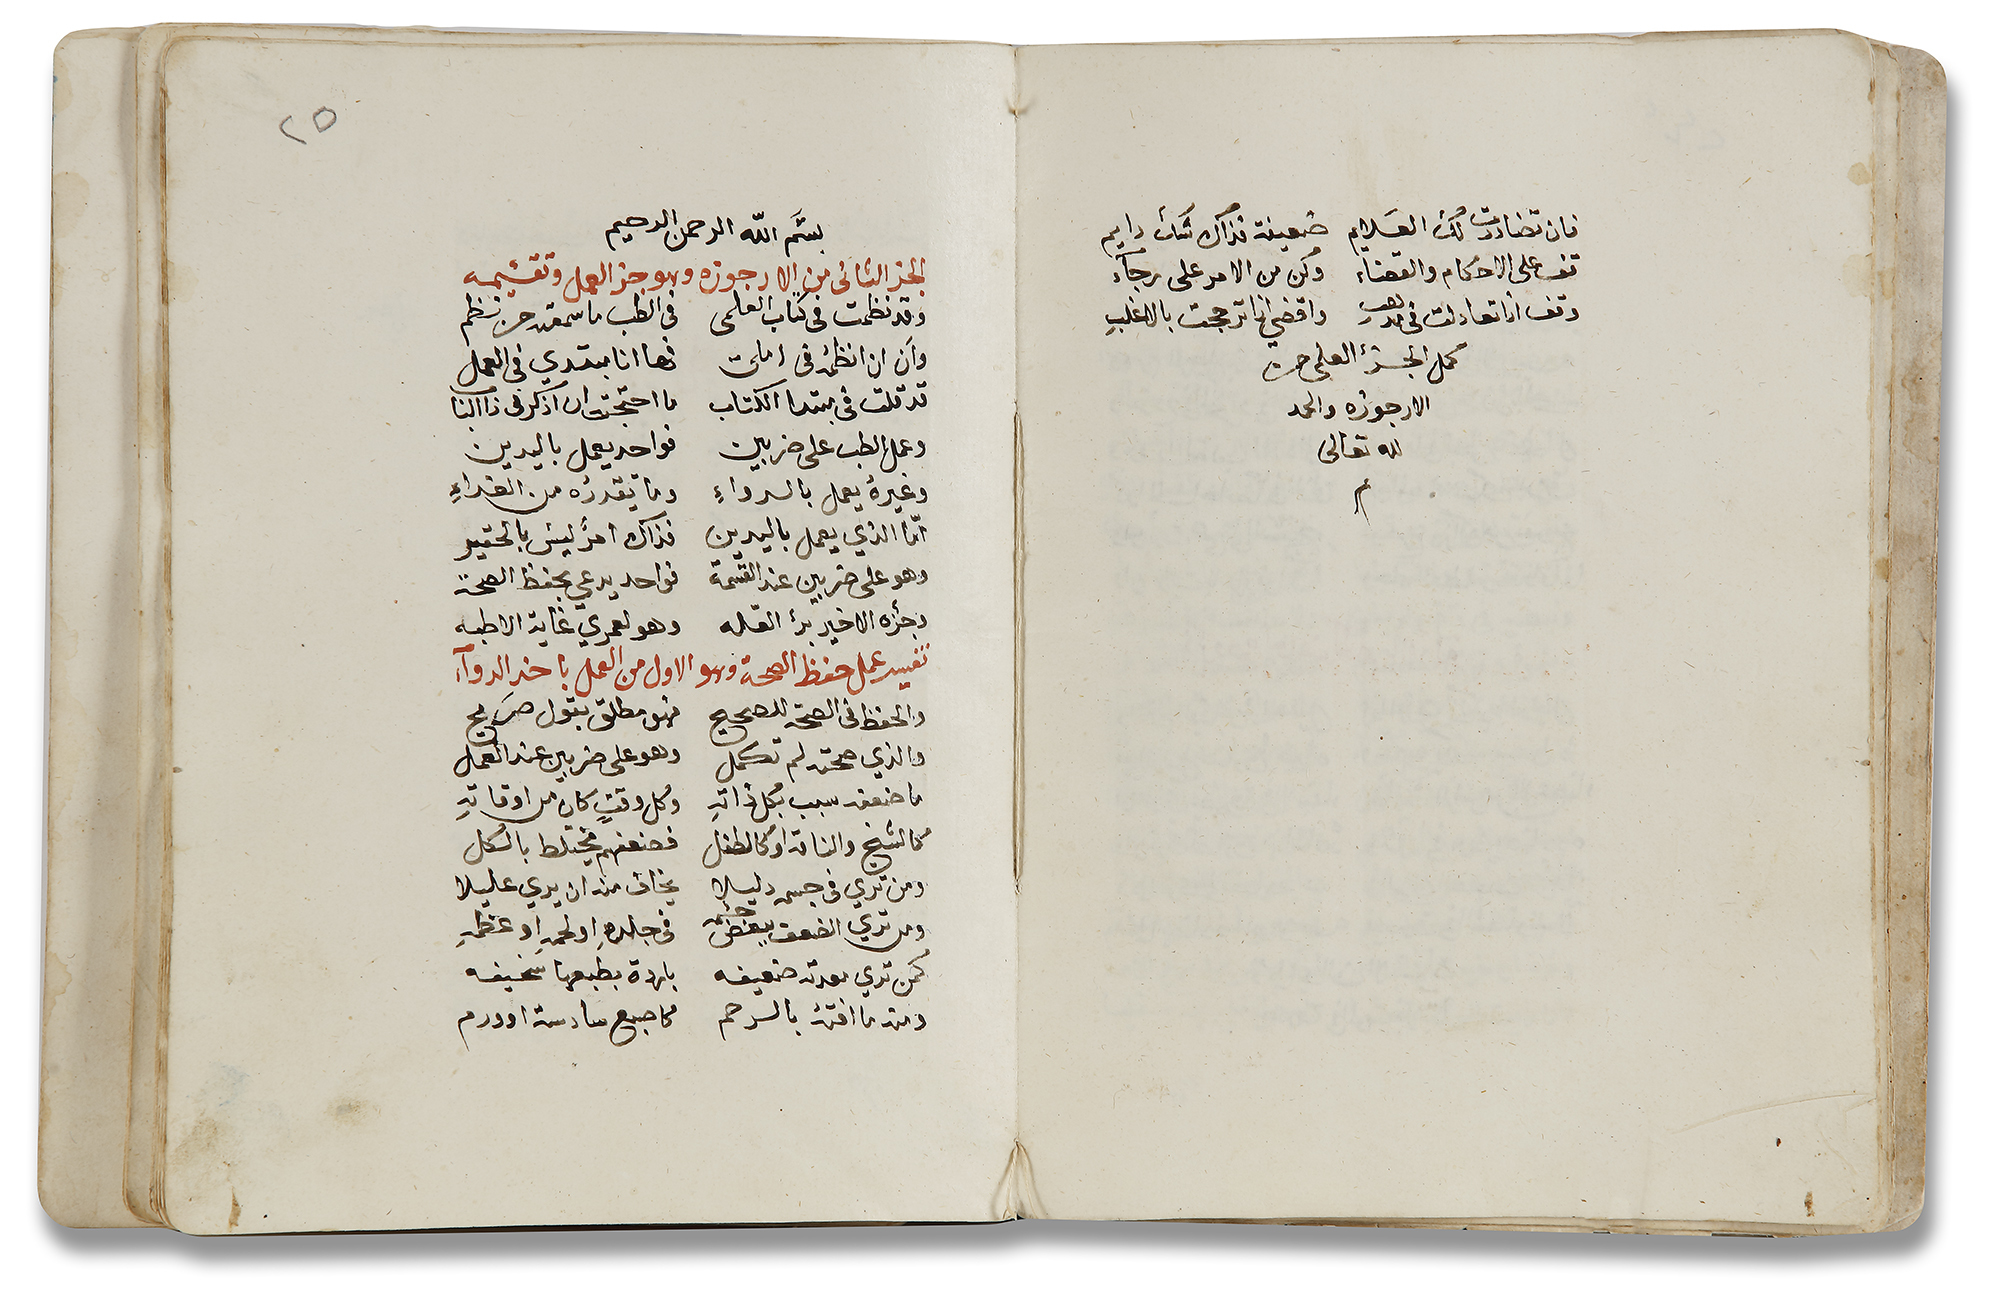 فان تضاددت لك العلايم ضعيفة فذاك شك دايم
قف على الاحكام والقضاء وكن من الامر على رجاء
وقف اذا تعادلت في مذهب واقضي اذا ترجحت بالاغلب
كمل الجزء العلمي من
الارجوزه والحمد
لله تعالى
م
٢٥
بسم الله الرحمن الرحيم
الجز الثاني من الارجوزه وهو جز العمل وتقسيمه
وقد نظمت في كتاب العلمي في الطب ما سمعته من نظم
وآن ان انظمه في املي فها انا مبتدي في العمل
قد قلت في مبتدا الكتاب ما احتجت ان اذكر في ذا الباب
وعمل الطب على ضربين فواحد يعمل باليدين
وغيره يعمل بالدواء وما تقدره من الغذاء
امّا الذي يعمل باليدين فذاك امرٌ ليس بالحقير
وهو على ضربين عند القسمة فواحد يدعي بحفظ الصحة
وجزه الاخير برء العله وهو لعمري غاية الاطبه
تفسير عمل حفظ الصحة وهو الاول من العمل باخذ الدوآء
والحفظ في الصحة للصحيح فهو مطلق بقول صريح
والذي صحته لم تكمل وهو على ضربين عند العمل
ما ضعفه سبب بكل ذاته وكل وقت كان من اوقاته
كمالشيخ والناقه او كالطفل فضعفهم مختلط بالكل
ومن تري في جسمه دليلا يخاف منه ان يري عليلا
ومن تري الضعف ببعض جسمه في جلده او لحمه او عظمه
كمن تري معدته ضعيفه باردة بطبعها سخيفه
ومنه ما افته بالرحم كاصبع سادسة او ورم